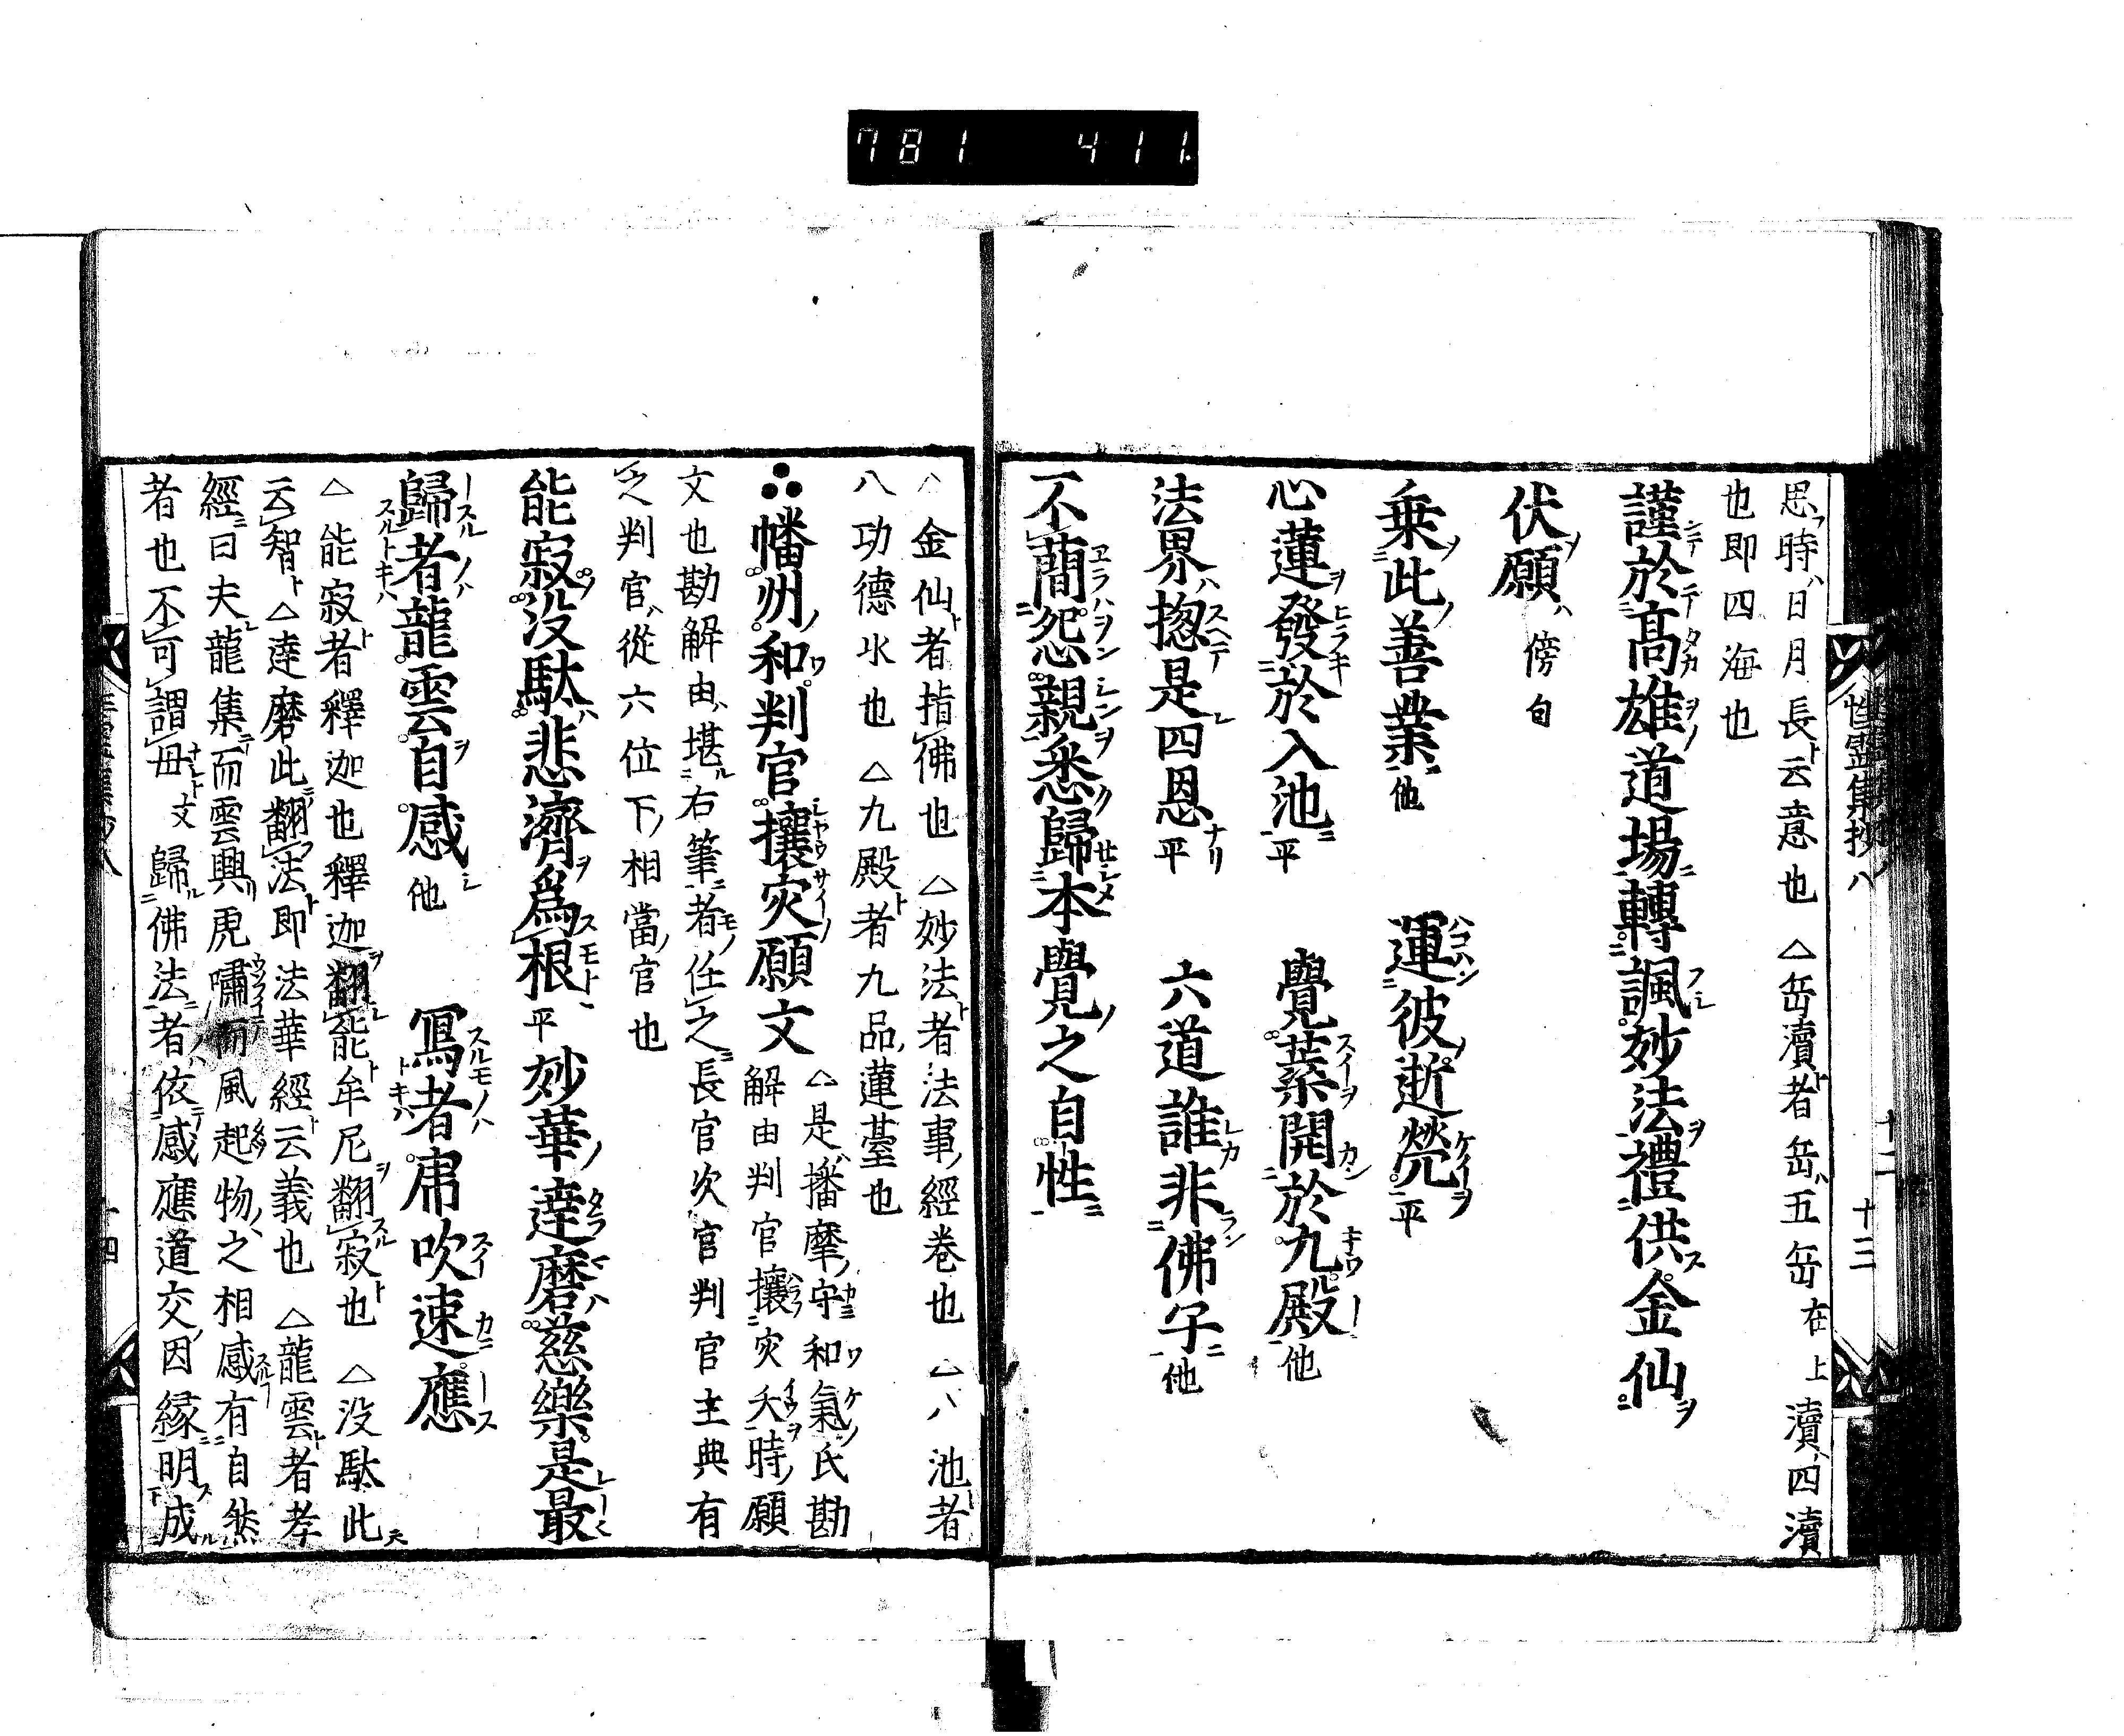 781 411.
思時日月長云意也 △岳瀆者岳五岳在上瀆四瀆
也即四海也
謹於高雄道場轉諷妙法禮供金仙
伏願 傍句
乗此善業他 運彼逝煢平
心蓮發於入池平 覺蘂開於九殿他
法界揔是四恩平 六道誰非佛子他
不蕳怨親悉歸本覺之自性
性靈集抄八
十三
△金仙者指佛也 △妙法者法事經卷也 △八池者
八功德水也 △九殿者九品蓮臺也
幡州和判官攘灾願文 △是播摩守和氣氏勘
解由判官攘灾夭時願
文也勘解由堪右筆者任之長官次官判官主典有
之判官從六位下相當官也
能寂没駄悲濟爲根平 妙華達磨慈樂是最
歸者龍雲自感他 寫者虎吹速應
△能寂者釋迦也釋迦翻能牟尼翻寂也 △没駄此
云智 △達磨此翻法即法華經云義也 △龍雲者孝
經曰夫龍集而雲興虎嘯而風起物之相感有自然
者也不可謂毋文 歸佛法者依感應道交因縁明成